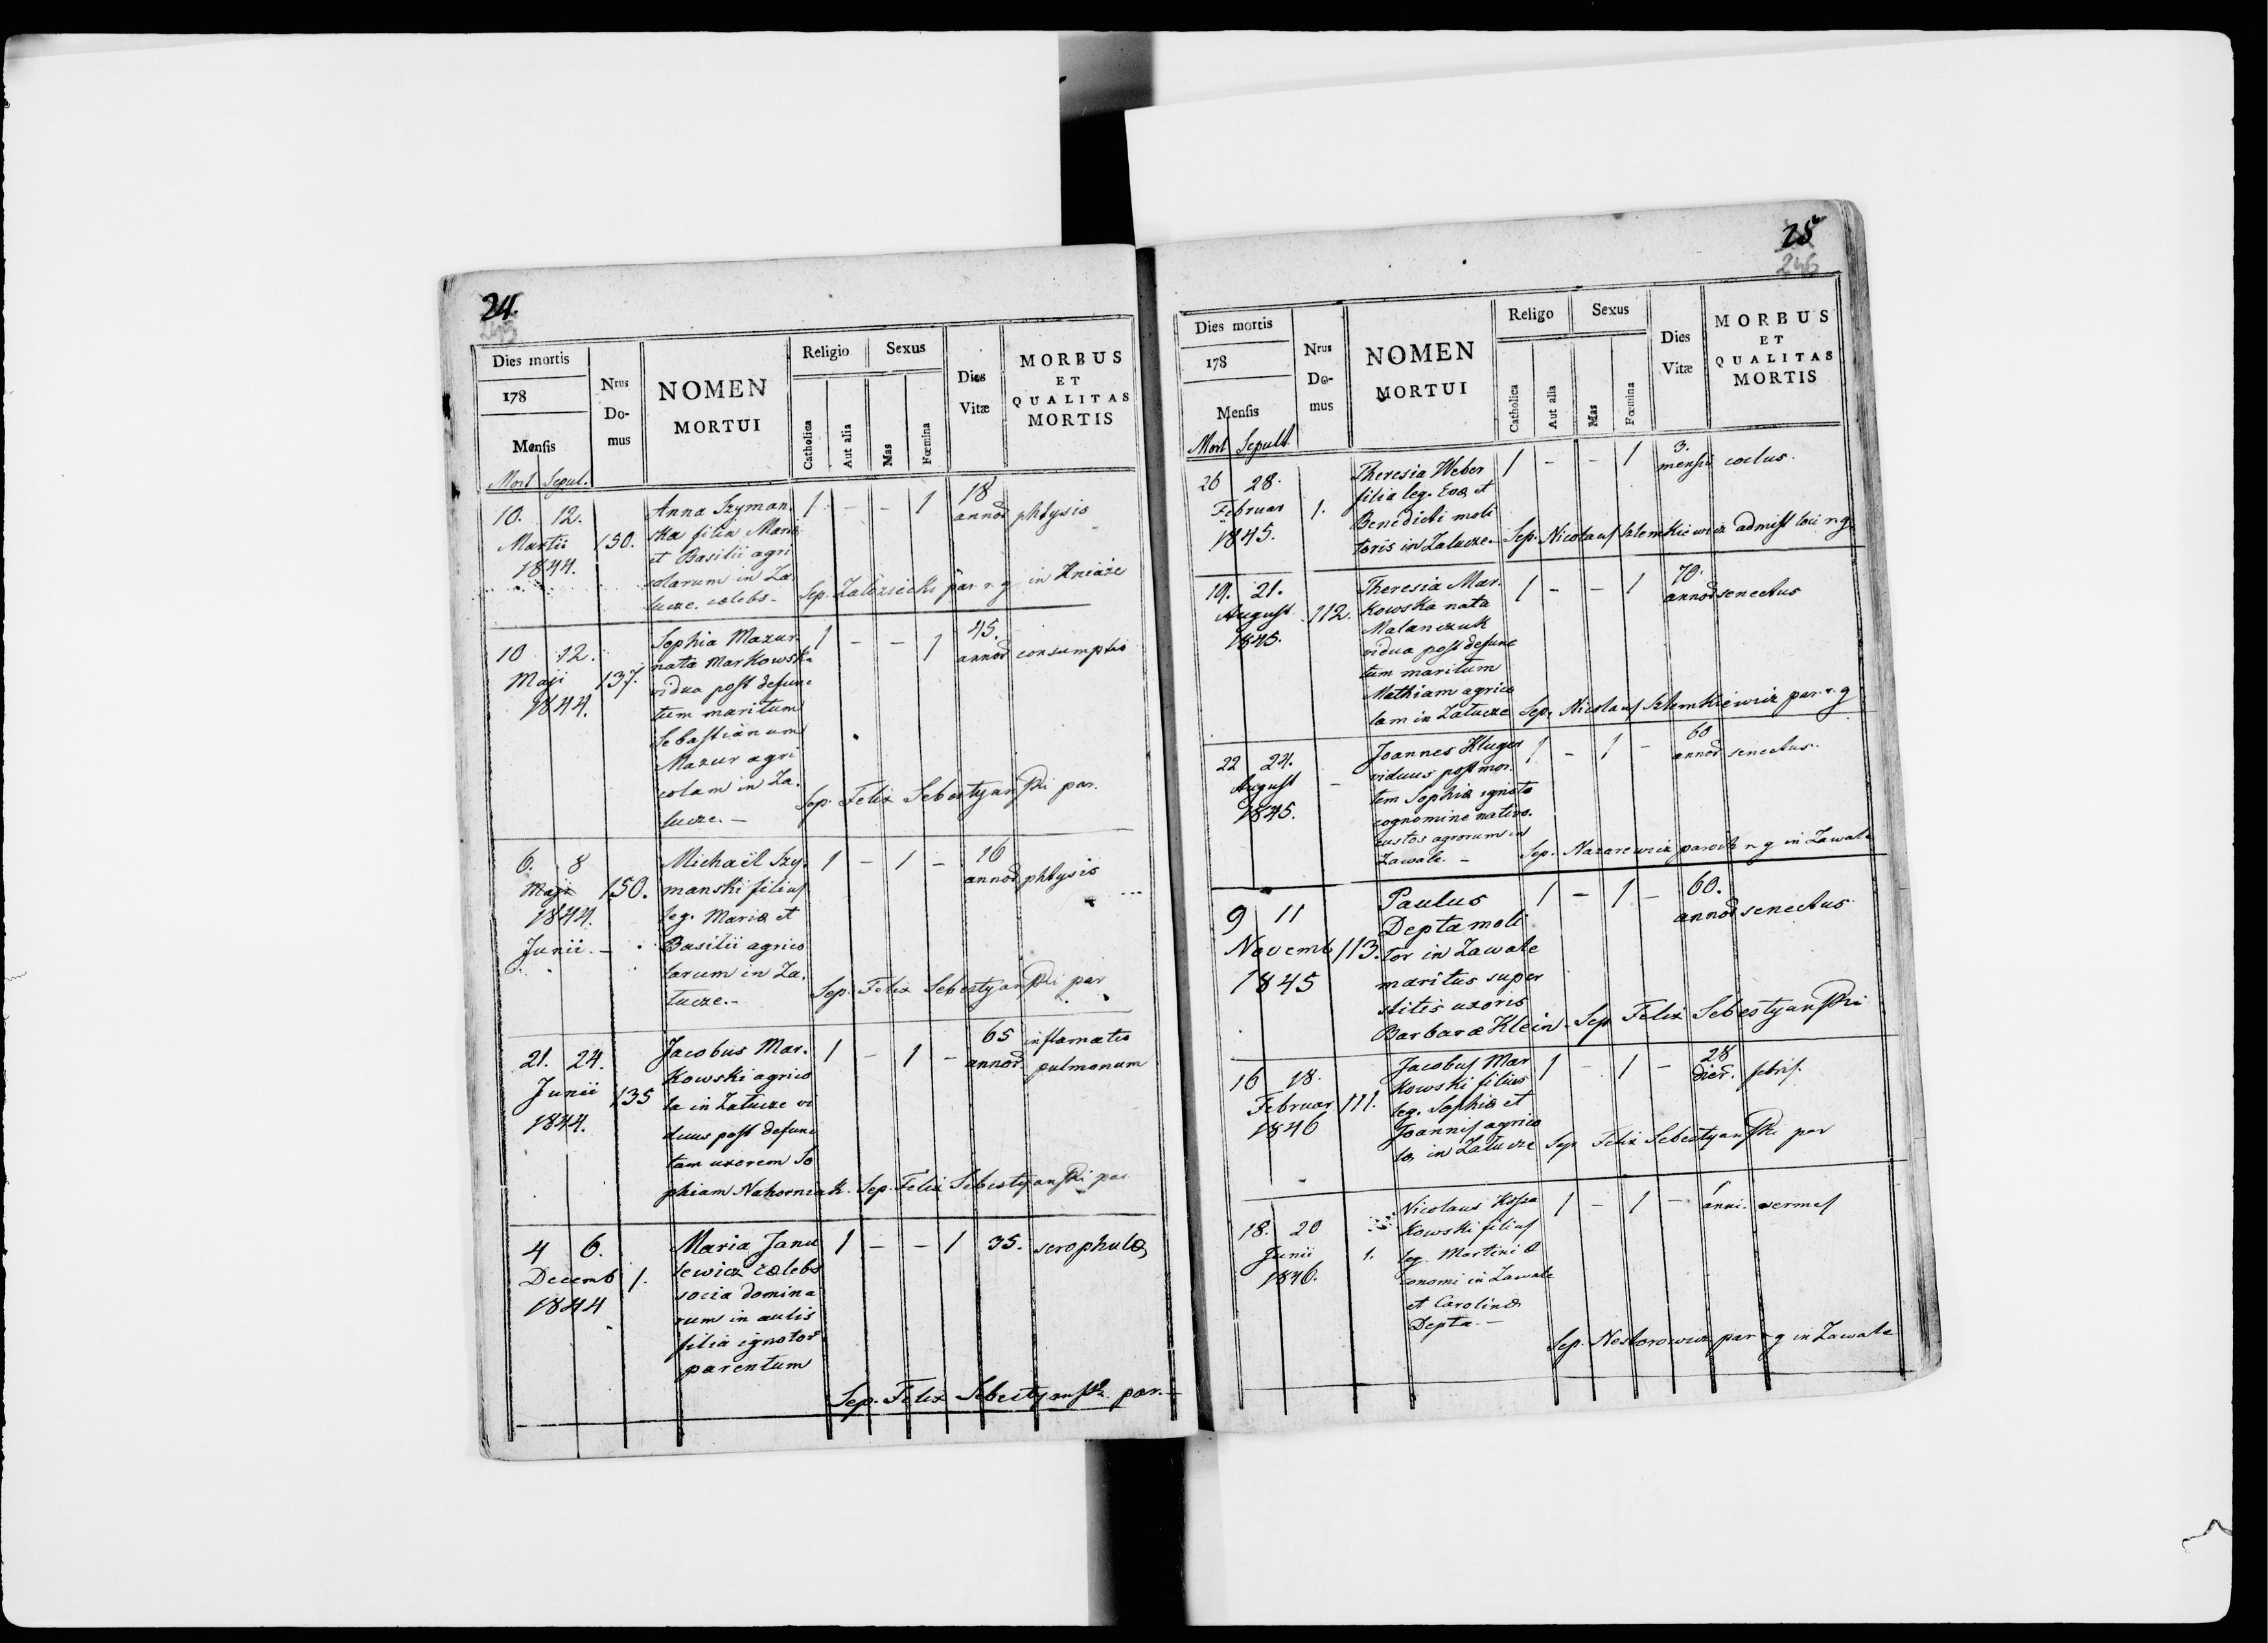 24.
245
Dies mortis
178
Mensis
Mort Sepul.
Nrus
Do-
mus
NOMEN
MORTUI
Religio
Catholica
Aut alia
Sexus
Mas
Fœmina
Dies
Vitæ
MORBUS
ET
QUALITAS
MORTIS
10. 12.
Martii
1844.
150.
Anna Szyman
ska filia Mariæ
et Basilii agri
colarum in Za
lucze. cælebs -
1 - - 1
18
annor
phtysis
Sep. Zaliziecki par r. g in Kniaze
10 12.
Maji
1844.
137.
Sophia Mazur
nata Markowska
vidua post defunc
tum maritum
Sebastianum
Mazur agri
colam in Za.
lucze. -
1 - - 1
45.
annor
consumptio
Sep. Felix Sebestyanski par.
6. 8
Maji
1844.
Junii. -
150.
Michaël Szy.
manski filius
leg. Mariæ et
Basilii agrico
larum in Za.
lucze. -
1 - 1 -
16
annor
phtysis
Sep. Felix Sebestyanski par
21. 24.
Junii
1844.
135
Jacobus Mar.
kowski agrico
la in Zalucze vi
duus post defunc
tam uxorem So
phiam Nahorniak.
1 - 1 -
65
annor.
inflamatio
pulmonum
Sep. Felix Sebestyanski par
4 6.
Decemb
1844
1.
Maria Janu
sewicz cælebs
socia domina
rum in aulis
filia ignotor
parentum
1 - - 1
35.
scrophulæ
Sep. Felix Sebestyanski par. -
25
246
Dies mortis
178
Mensis
Mort Sepult
Nrus
Do-
mus
NOMEN
MORTUI
Religo
Catholica
Aut alia
Sexus
Mas
Fœmina
Dies
Vitæ
MORBUS
ET
QUALITAS
MORTIS
26 28.
Februar
1845.
1.
Theresia Weber
filia leg. Evæ et
Benedicti moli
toris in Zalucze.
1 - - 1
3.
mensis
coctus.
Sep. Nicolaus Szlemkiewicz admist loci r. g.
19. 21.
August
1845.
112.
Theresia Mar.
kowska nata
Malanczuk
vidua post defunc
tum maritum
Mathiam agrico
lam in Zalucze
1 - - 1
70.
annor
senectus
Sep. Nicolaus Szlemkiewicz par. r. g
22 24.
August
1845.
-
Joannes Kluger
viduus post mor.
tem Sophiæ ignoto
cognomine nativo.
custos agrorum in
Zawale. -
1 - 1 -
60
annor
senectus.
Sep. Nazarewicz paroch r g in Zawale
9 11
Novemb
1845
113.
Paulus
Depta moli
tor in Zawale
maritus super
stitis uxoris
Barbaræ Klein.
1 - 1 -
60.
annor
senectus.
Sep Felix Sebestyanski
16 18.
Februar
1846
111.
Jacobus Mar
kowski filius
leg. Sophiæ et
Joannis agrico
læ in Zalucze
1 - 1 -
28
dier.
febris.
Sep Felix Sebestyanski par
18. 20
Junii
1846.
1.
Nicolaus
kowski filius
leg. Martini æ
conomi in Zawale
et Carolinæ
Depta. -
1 - 1 -
1
anni.
vermes
Sep. Nestorowicz par r g in Zawale